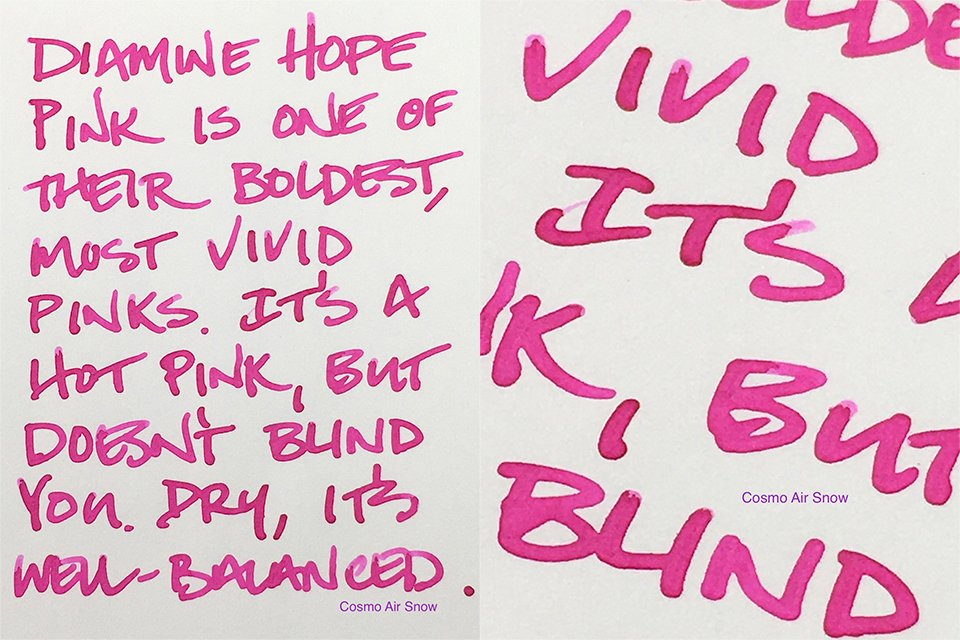 DIAMINE HOPE
PINK IS ONE OF
THEIR BOLDEST,
MOST VIVID
PINKS. IT'S A
HOT PINK, BUT
DOESN'T BLIND
YOU. DRY, IT'S
WELL-BALANCED.
Cosmo Air Snow
OLDE
VIVID
IT'S
K, BUT
BLIND
Cosmo Air Snow